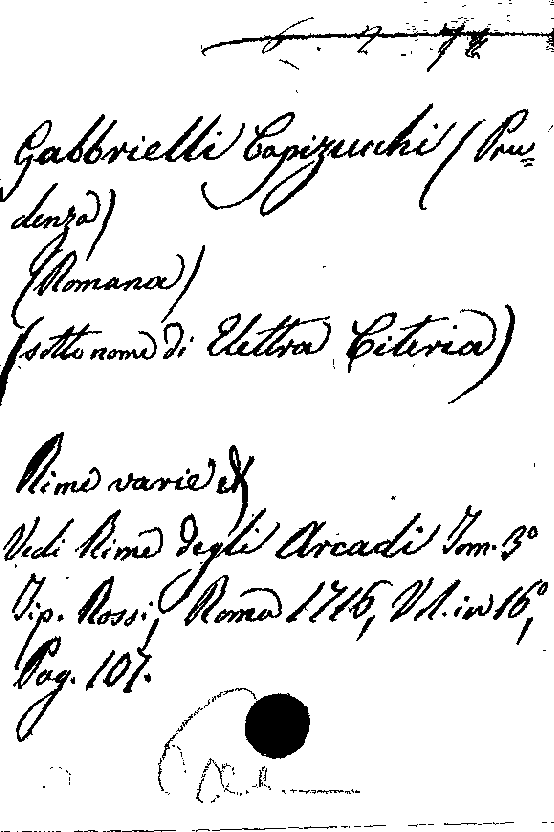 6. 2. 74
Gabbrielli Capizucchi (Pru=
denza)
(Romana)
(sotto nome di Elettra Citeria)
Rime varie
Vedi Rime degli Arcadi Tom. 3º
Tip. Rossi, Roma 1716, Vol. in 16º,
Pag. 107.